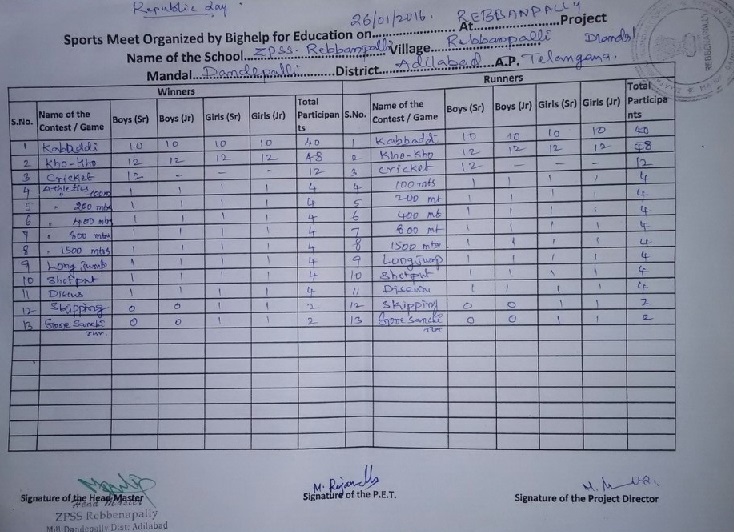 Republic day
Sports Meet Organized by Bighelp for Education on 26/01/2016 At REBBANPALLY Project
Name of the School ZPSS. Rebbanpalli Village Rebbanpalli Mandal
Mandal Dandepalli District Adilabad A.P. Telangana.
Winners Runners
S.No. Name of the Contest / Game Boys (Sr) Boys (Jr) Girls (Sr) Girls (Jr) Total Participants S.No. Name of the Contest / Game Boys (Sr) Boys (Jr) Girls (Sr) Girls (Jr) Total Participants
1 Kabbaddi 10 10 10 10 40 1 Kabbaddi 10 10 10 10 40
2 Kho-Kho 12 12 12 12 48 2 Kho-Kho 12 12 12 12 48
3 Cricket 12 - - - 12 3 Cricket 12 - - - 12
4 1 1 1 1 4 4 100 mts 1 1 1 1 4
5 " 200 mts 1 1 1 1 4 5 200 mt 1 1 1 1 4
6 " 400 mts 1 1 1 1 4 6 400 mt 1 1 1 1 4
7 " 800 mts 1 1 1 1 4 7 800 mt 1 1 1 1 4
8 " 1500 mts 1 1 1 1 4 8 1500 mts 1 1 1 1 4
9 Long jump 1 1 1 1 4 9 Longjump 1 1 1 1 4
10 Shotput 1 1 1 1 4 10 Shotput 1 1 1 1 4
11 Discus 1 1 1 1 4 11 1 1 1 1 4
12 Skipping 0 0 1 1 2 12 Skipping 0 0 1 1 2
13 0 0 1 1 2 13 0 0 1 1 2
Signature of the Head Master Signature of the P.E.T. Signature of the Project Director
Head Master
ZPSS Rebbenapally
Mdl: Dandepally Dist: Adilabad